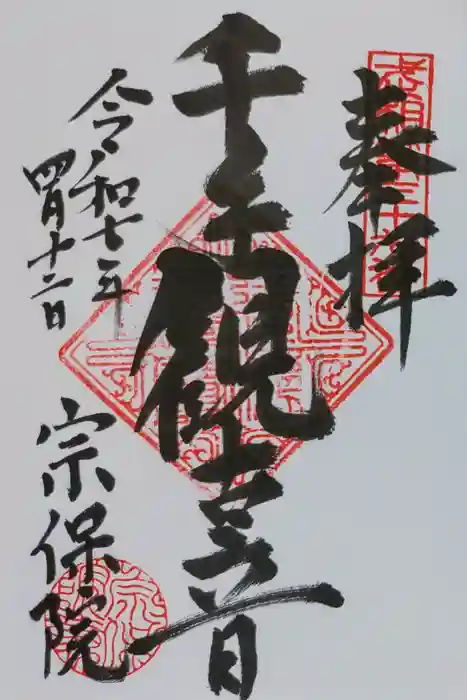 奉拝
千手観音
令和七年
四月十二日
宗保院